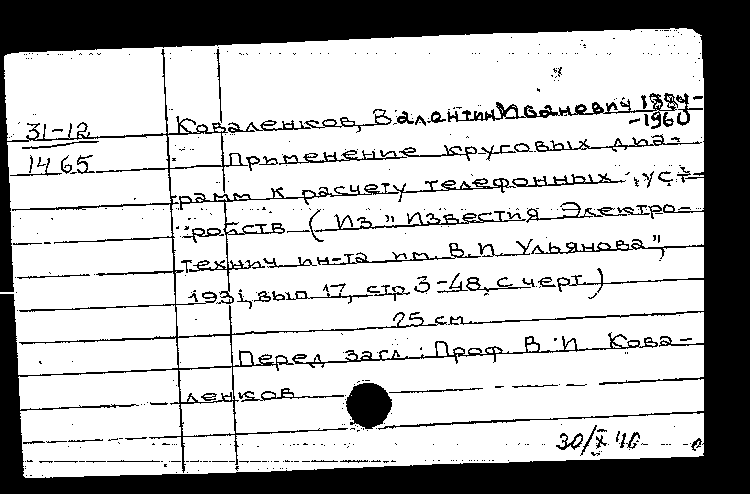 31-12
1465
Коваленков, Валентин Иванович 1884-
-1960
Применение круговых диа-
грамм к расчету телефонных уст-
ройств (Из "Известия Электро-
технич ин-та им. В.И. Ульянова",
1931, вып 17, стр 3-48, с черт.)
25 см
Перед загл: Проф В.И Кова-
ленков
30/X 40